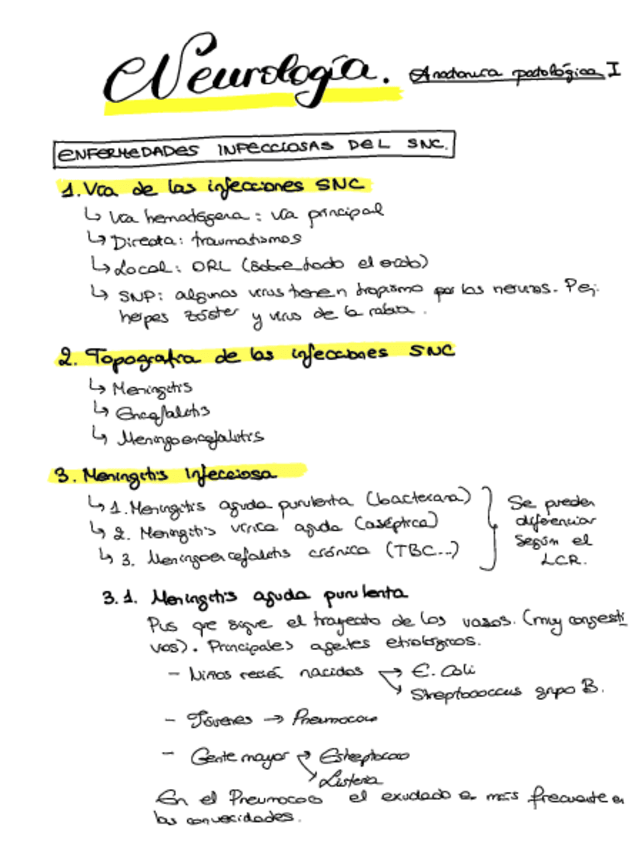 Neurología. Anatomia patológica I
ENFERMEDADES INFECCIOSAS DEL SNC.
1. Vía de las infecciones SNC
↳ Vía hematógena: vía principal
↳ Directa: traumatismos
↳ Local: ORL (sobre todo el oído)
↳ SNP: algunos virus tienen tropismo por los nervios. Pej:
herpes zóster y virus de la rabia.
2. Topografía de las infecciones SNC
↳ Meningitis
↳ Encefalitis
↳ Meningoencefalitis
3. Meningitis infecciosa
↳ 1. Meningitis aguda purulenta (bacteriana)
↳ 2. Meningitis vírica aguda (aséptica)
↳ 3. Meningoencefalitis crónica (TBC...)
Se pueden
diferenciar
según el
LCR.
3.1. Meningitis aguda purulenta
Pus que sigue el trayecto de los vasos. (muy congesti
vos). Principales agentes etiológicos.
- Niños recién nacidos → E. Coli
↘ Streptococcus grupo B.
- Jóvenes → Pneumococo
- Gente mayor → Estreptococo
↘ Listeria
En el Pneumococo el exudado es más frecuente en
las convexidades.